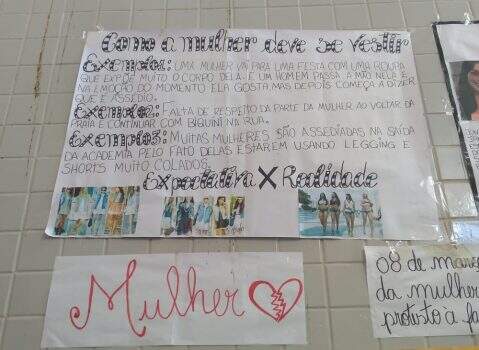 Como a mulher deve se vestir
Exemplo1: UMA MULHER VAI PARA UMA FESTA COM UMA ROUPA
QUE EXPÕE MUITO O CORPO DELA E UM HOMEM PASSA A MÃO NELA E
NA EMOÇÃO DO MOMENTO ELA GOSTA, MAS DEPOIS COMEÇA A DIZER
QUE É ASSÉDIO.
Exemplo2: FALTA DE RESPEITO DA PARTE DA MULHER AO VOLTAR DA
PRAIA E CONTINUAR COM BIQUINI NA RUA.
Exemplo3: MUITAS MULHERES SÃO ASSEDIADAS NA SAÍDA
DA ACADEMIA PELO FATO DELAS ESTAREM USANDO LEGGING E
SHORTS MUITO COLADOS.
Expectativa X Realidade
Mulher
08 de
da mulher
protesto a